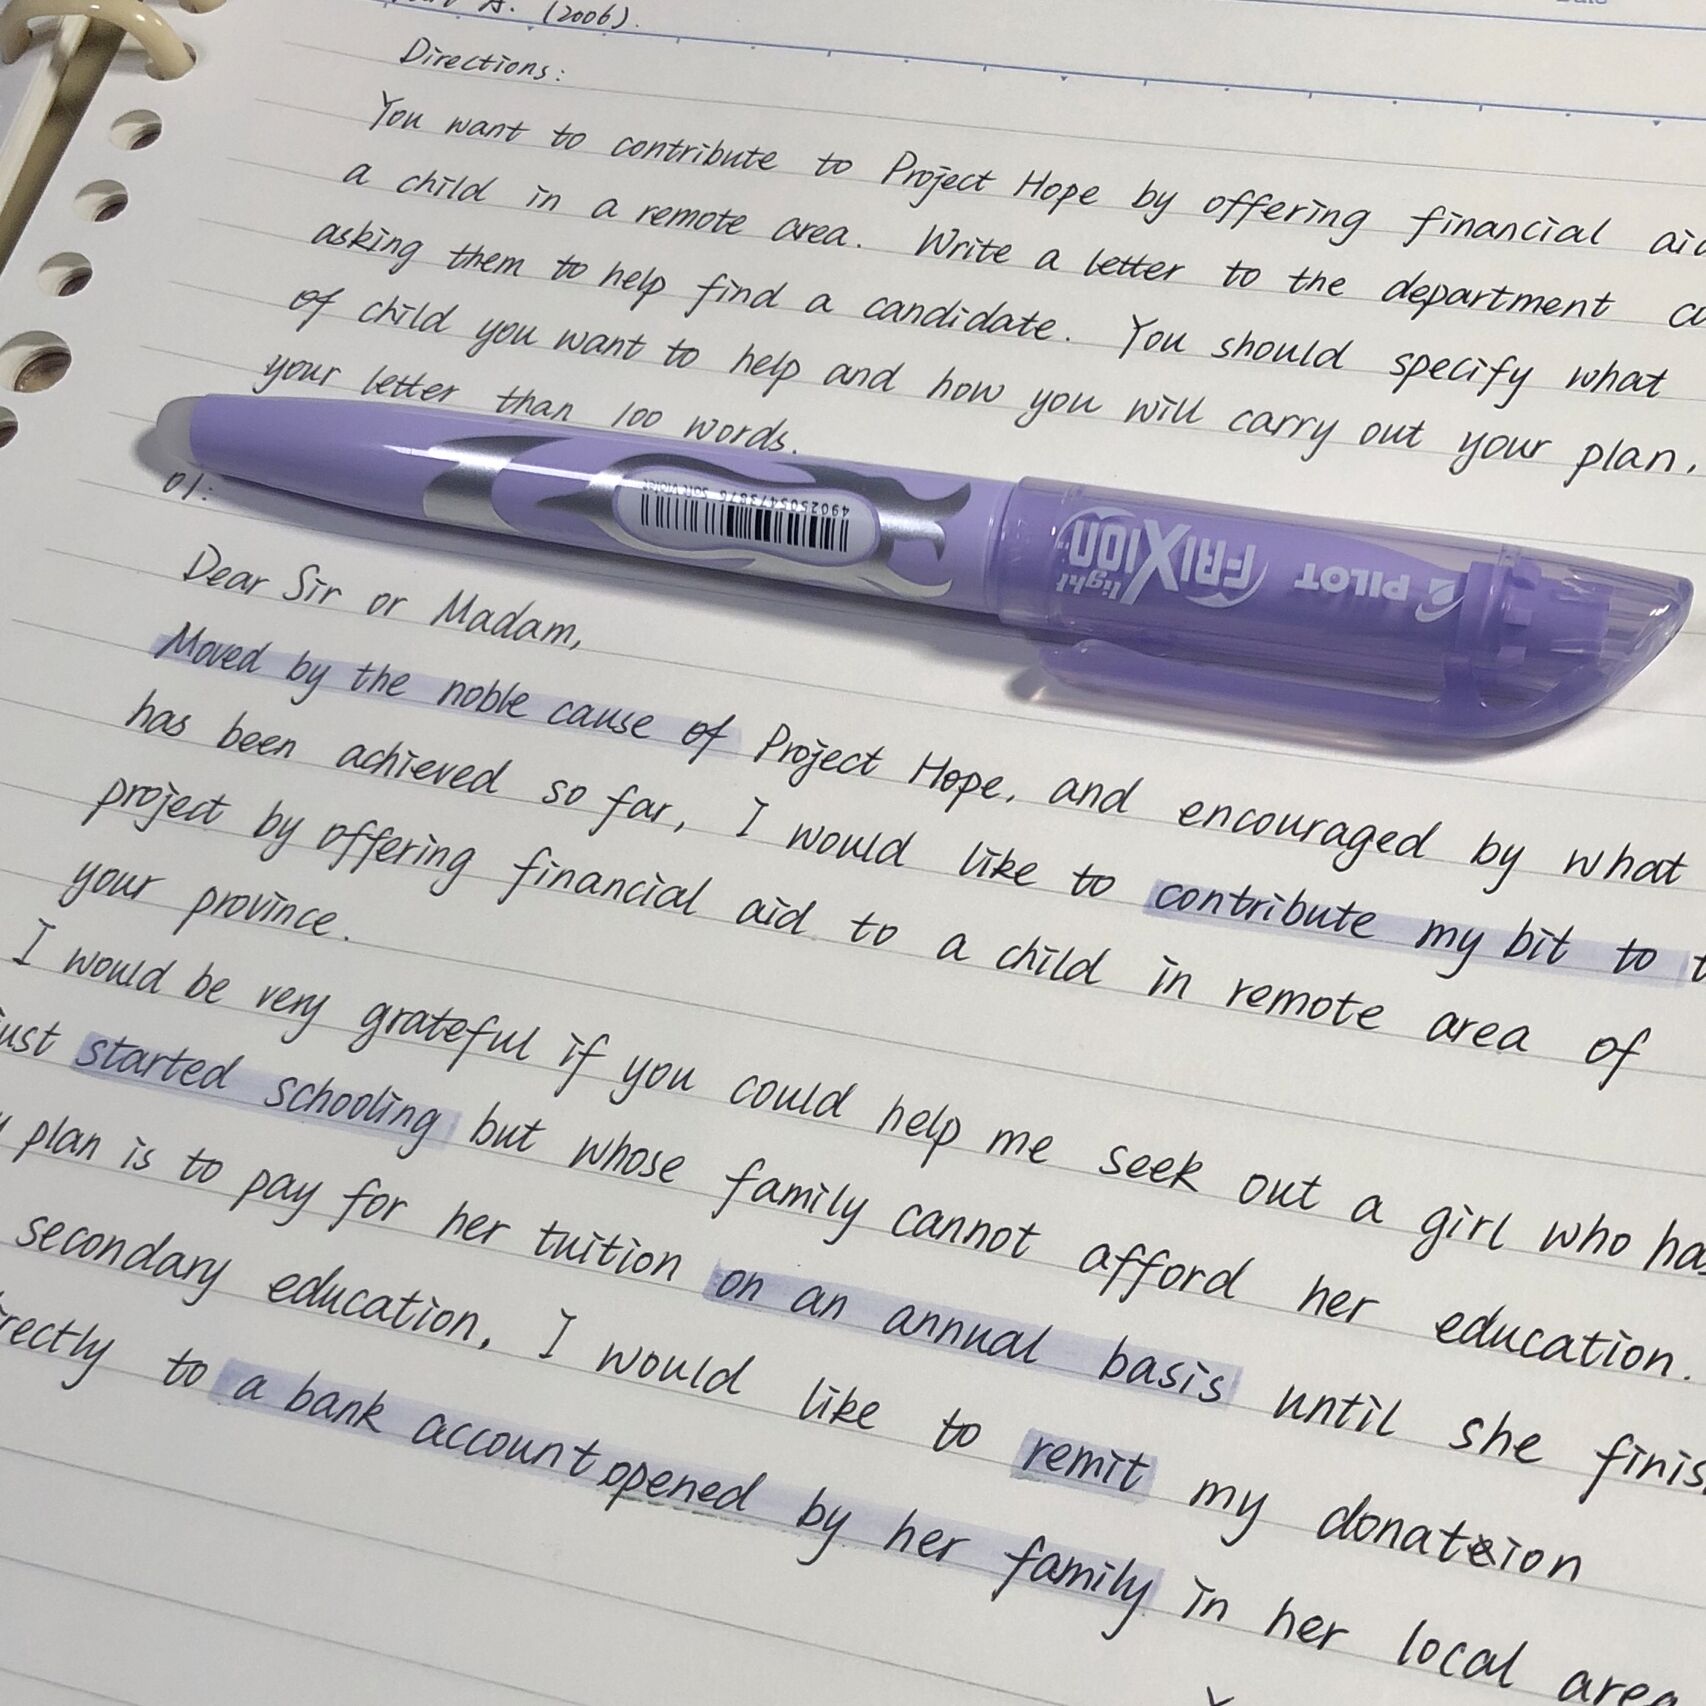 A. (2006).
Directions:
You want to contribute to Project Hope by offering financial
a child in a remote area. Write a letter to the department
asking them to help find a candidate. You should specify what
of child you want to help and how you will carry out your plan.
your letter than 100 words.
01:
4902505473876 soft violet
PILOT FRIXION light
Dear Sir or Madam,
Moved by the noble cause of Project Hope, and encouraged by what
has been achieved so far, I would like to contribute my bit to
project by offering financial aid to a child in remote area of
your province.
I would be very grateful if you could help me seek out a girl who
started schooling but whose family cannot afford her education.
plan is to pay for her tuition on an annual basis until she
secondary education. I would like to remit my donation
to a bank account opened by her family in her local